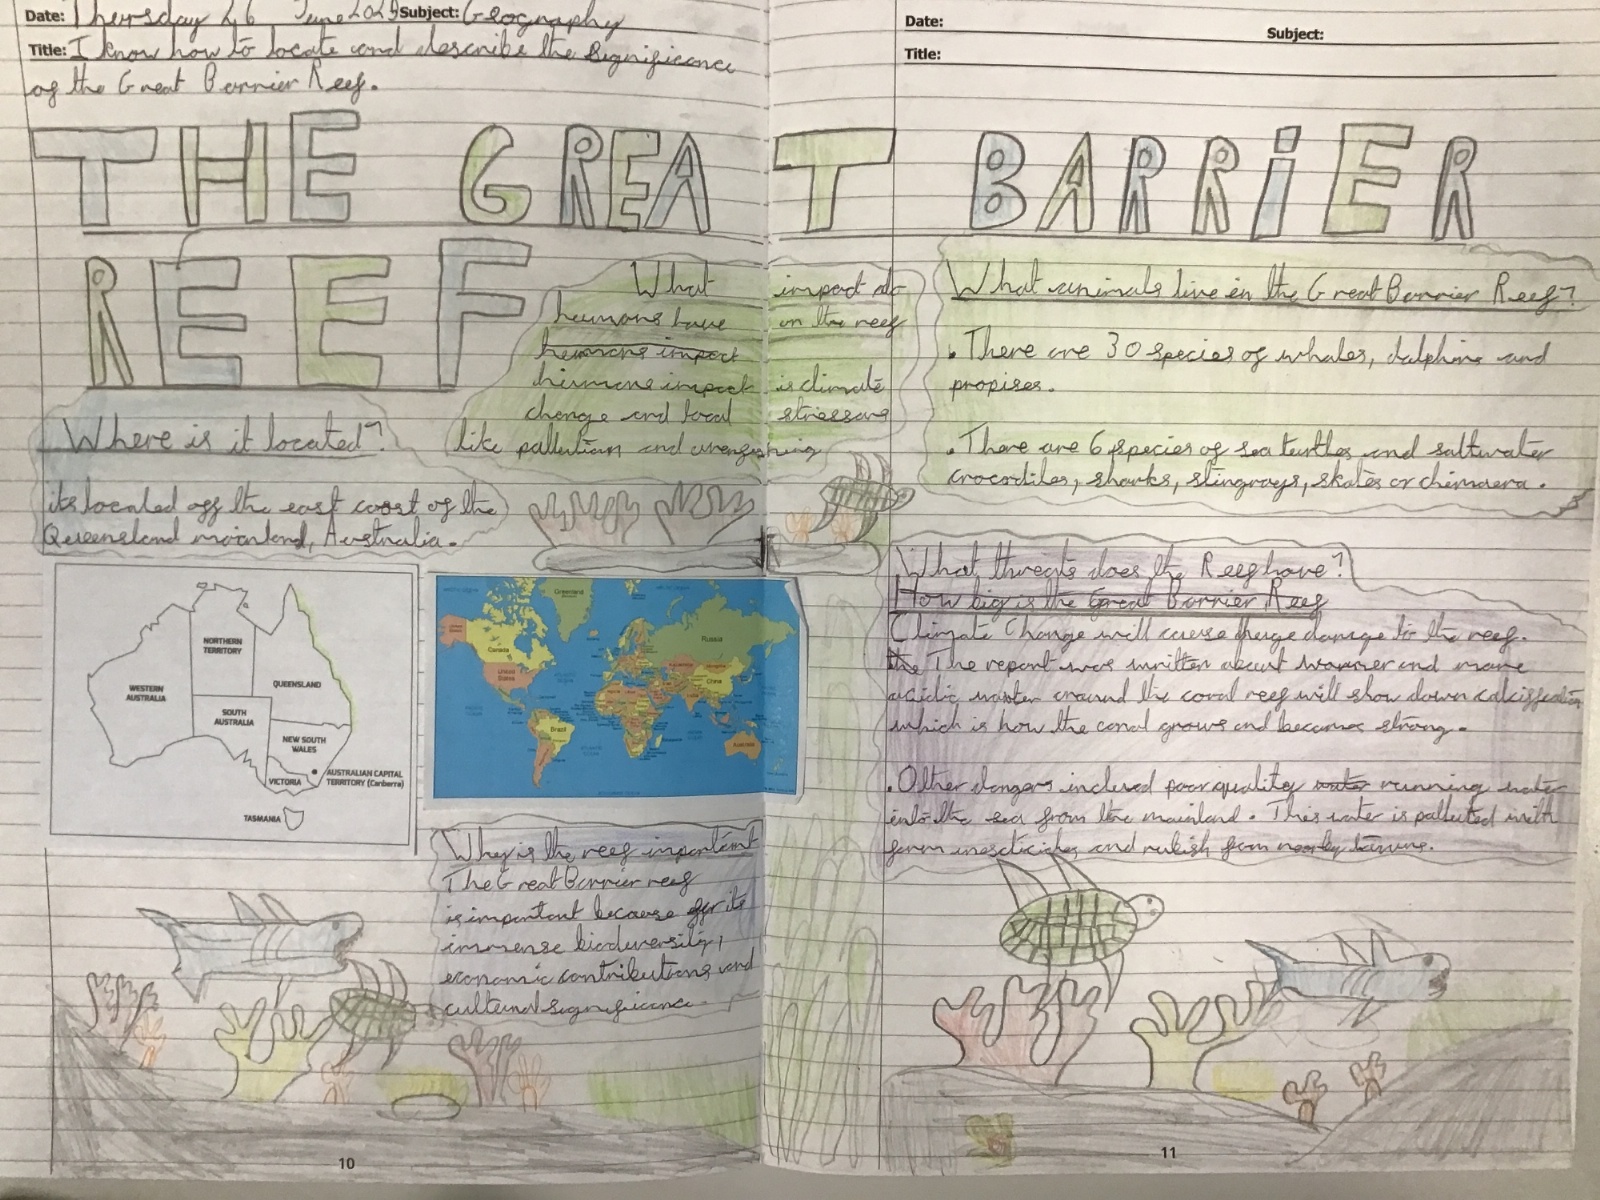 Date: Thursday 26 June 2025 Subject: Geography
Title: I know how to locate and describe the significance
of the Great Barrier Reef.
Date:
Subject:
Title:
THE GREAT BARRIER
REEF
What impact do
humons have on the reef
humans impact
humans impact is climate
change and local stressors
like pallution and overfishing
Where is it located?
its located off the east coast of the
Queensland mainland, Australia.
NORTHERN
TERRITORY
WESTERN
AUSTRALIA
QUEENSLAND
SOUTH
AUSTRALIA
NEW SOUTH
WALES
VICTORIA
AUSTRALIAN CAPITAL
TERRITORY (Canberra)
TASMANIA
Greenland
Russia
Canada
United
States
China
Brazil
Australia
Why is the reef important
The Great Barrier reef
is important because of it's
immense biodiversity,
economic contributions and
cultural significance.
10
What animals live in the Great Barrier Reef?
. There are 30 species of whales, dalphins and
propises.
. There are 6 species of sea turtles and saltwater
crocodiles, sharks, stingrays, skates or chimaera.
What threats does the Reef have?
How big is the Great Barrier Reef
Climate Change will cause huge damage to the reef.
The report was written about warmer and more
acidic water around the coral reef will show down calcification
which is how the coral grows and becomes strong.
. Other dangers inclued poor quality water running water
into the sea from the mainland. This water is palluted with
farm insecticides and rubish from nearby towns.
11